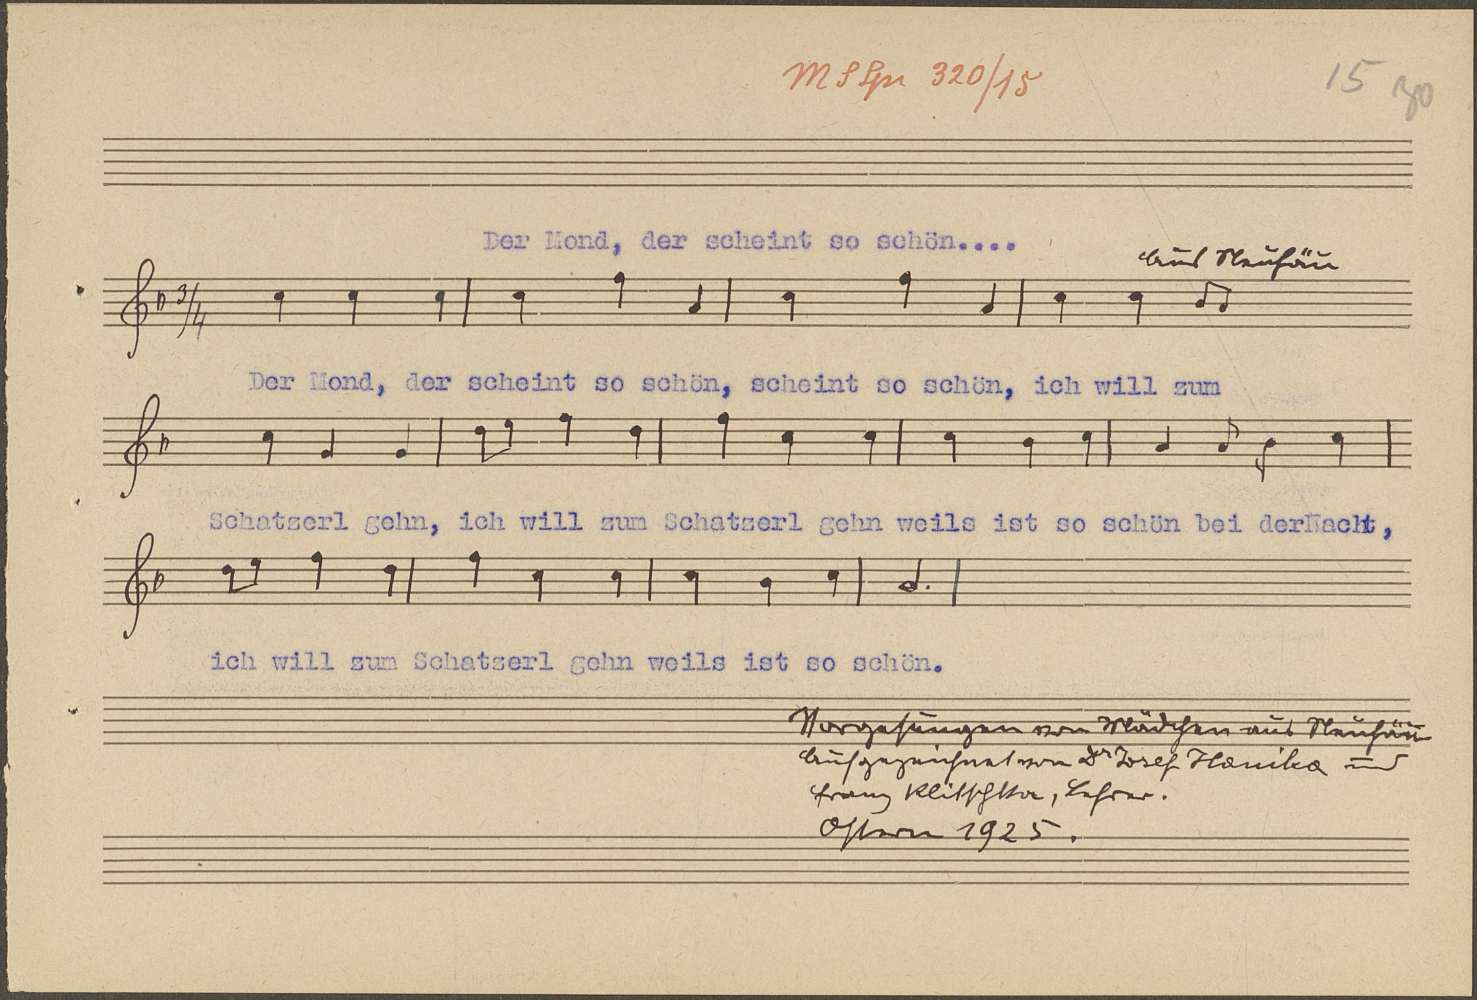 320/15
15 30
Der Mond, der scheint so schön....
aus Neuhäu
3/4
Der Mond, der scheint so schön, scheint so schön, ich will zum
Schatzerl gehn, ich will zum Schatzerl gehn weils ist so schön bei derNacht,
ich will zum Schatzerl gehn weils ist so schön.
Vorgesungen von Mädchen aus Neuhäu
Aufgezeichnet von Dr Josef Hanika und
Franz Klitschka, Lehrer.
Ostern 1925.